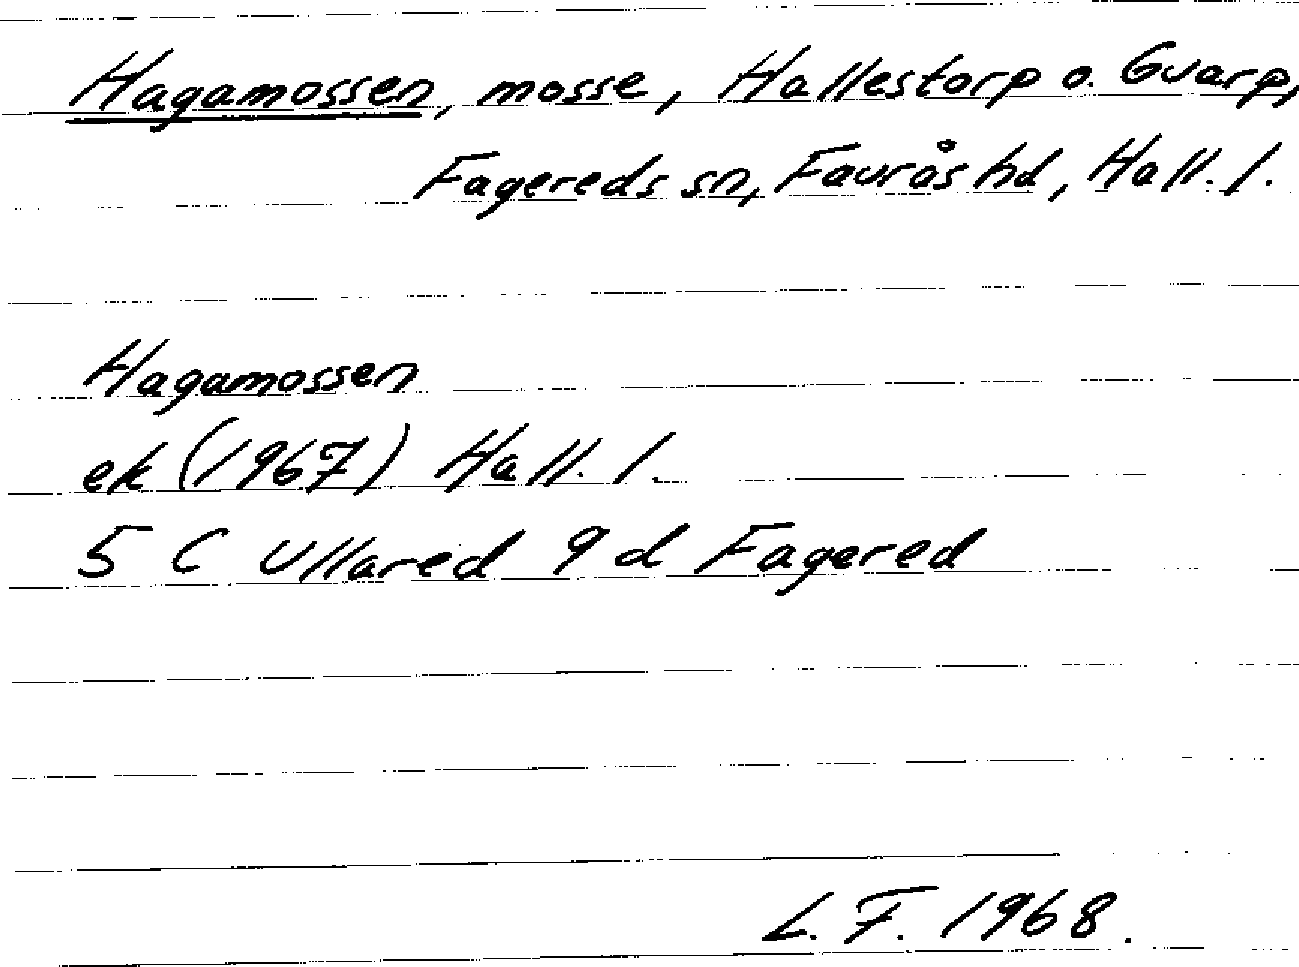 Hagamossen, mosse, Hallestorp o. Gvarp,
Fagereds sn, Faurås hd, Hall. l.
Hagamossen
ek (1967) Hall. l.
5 C Ullared 9 d Fagered
L. F. 1968.